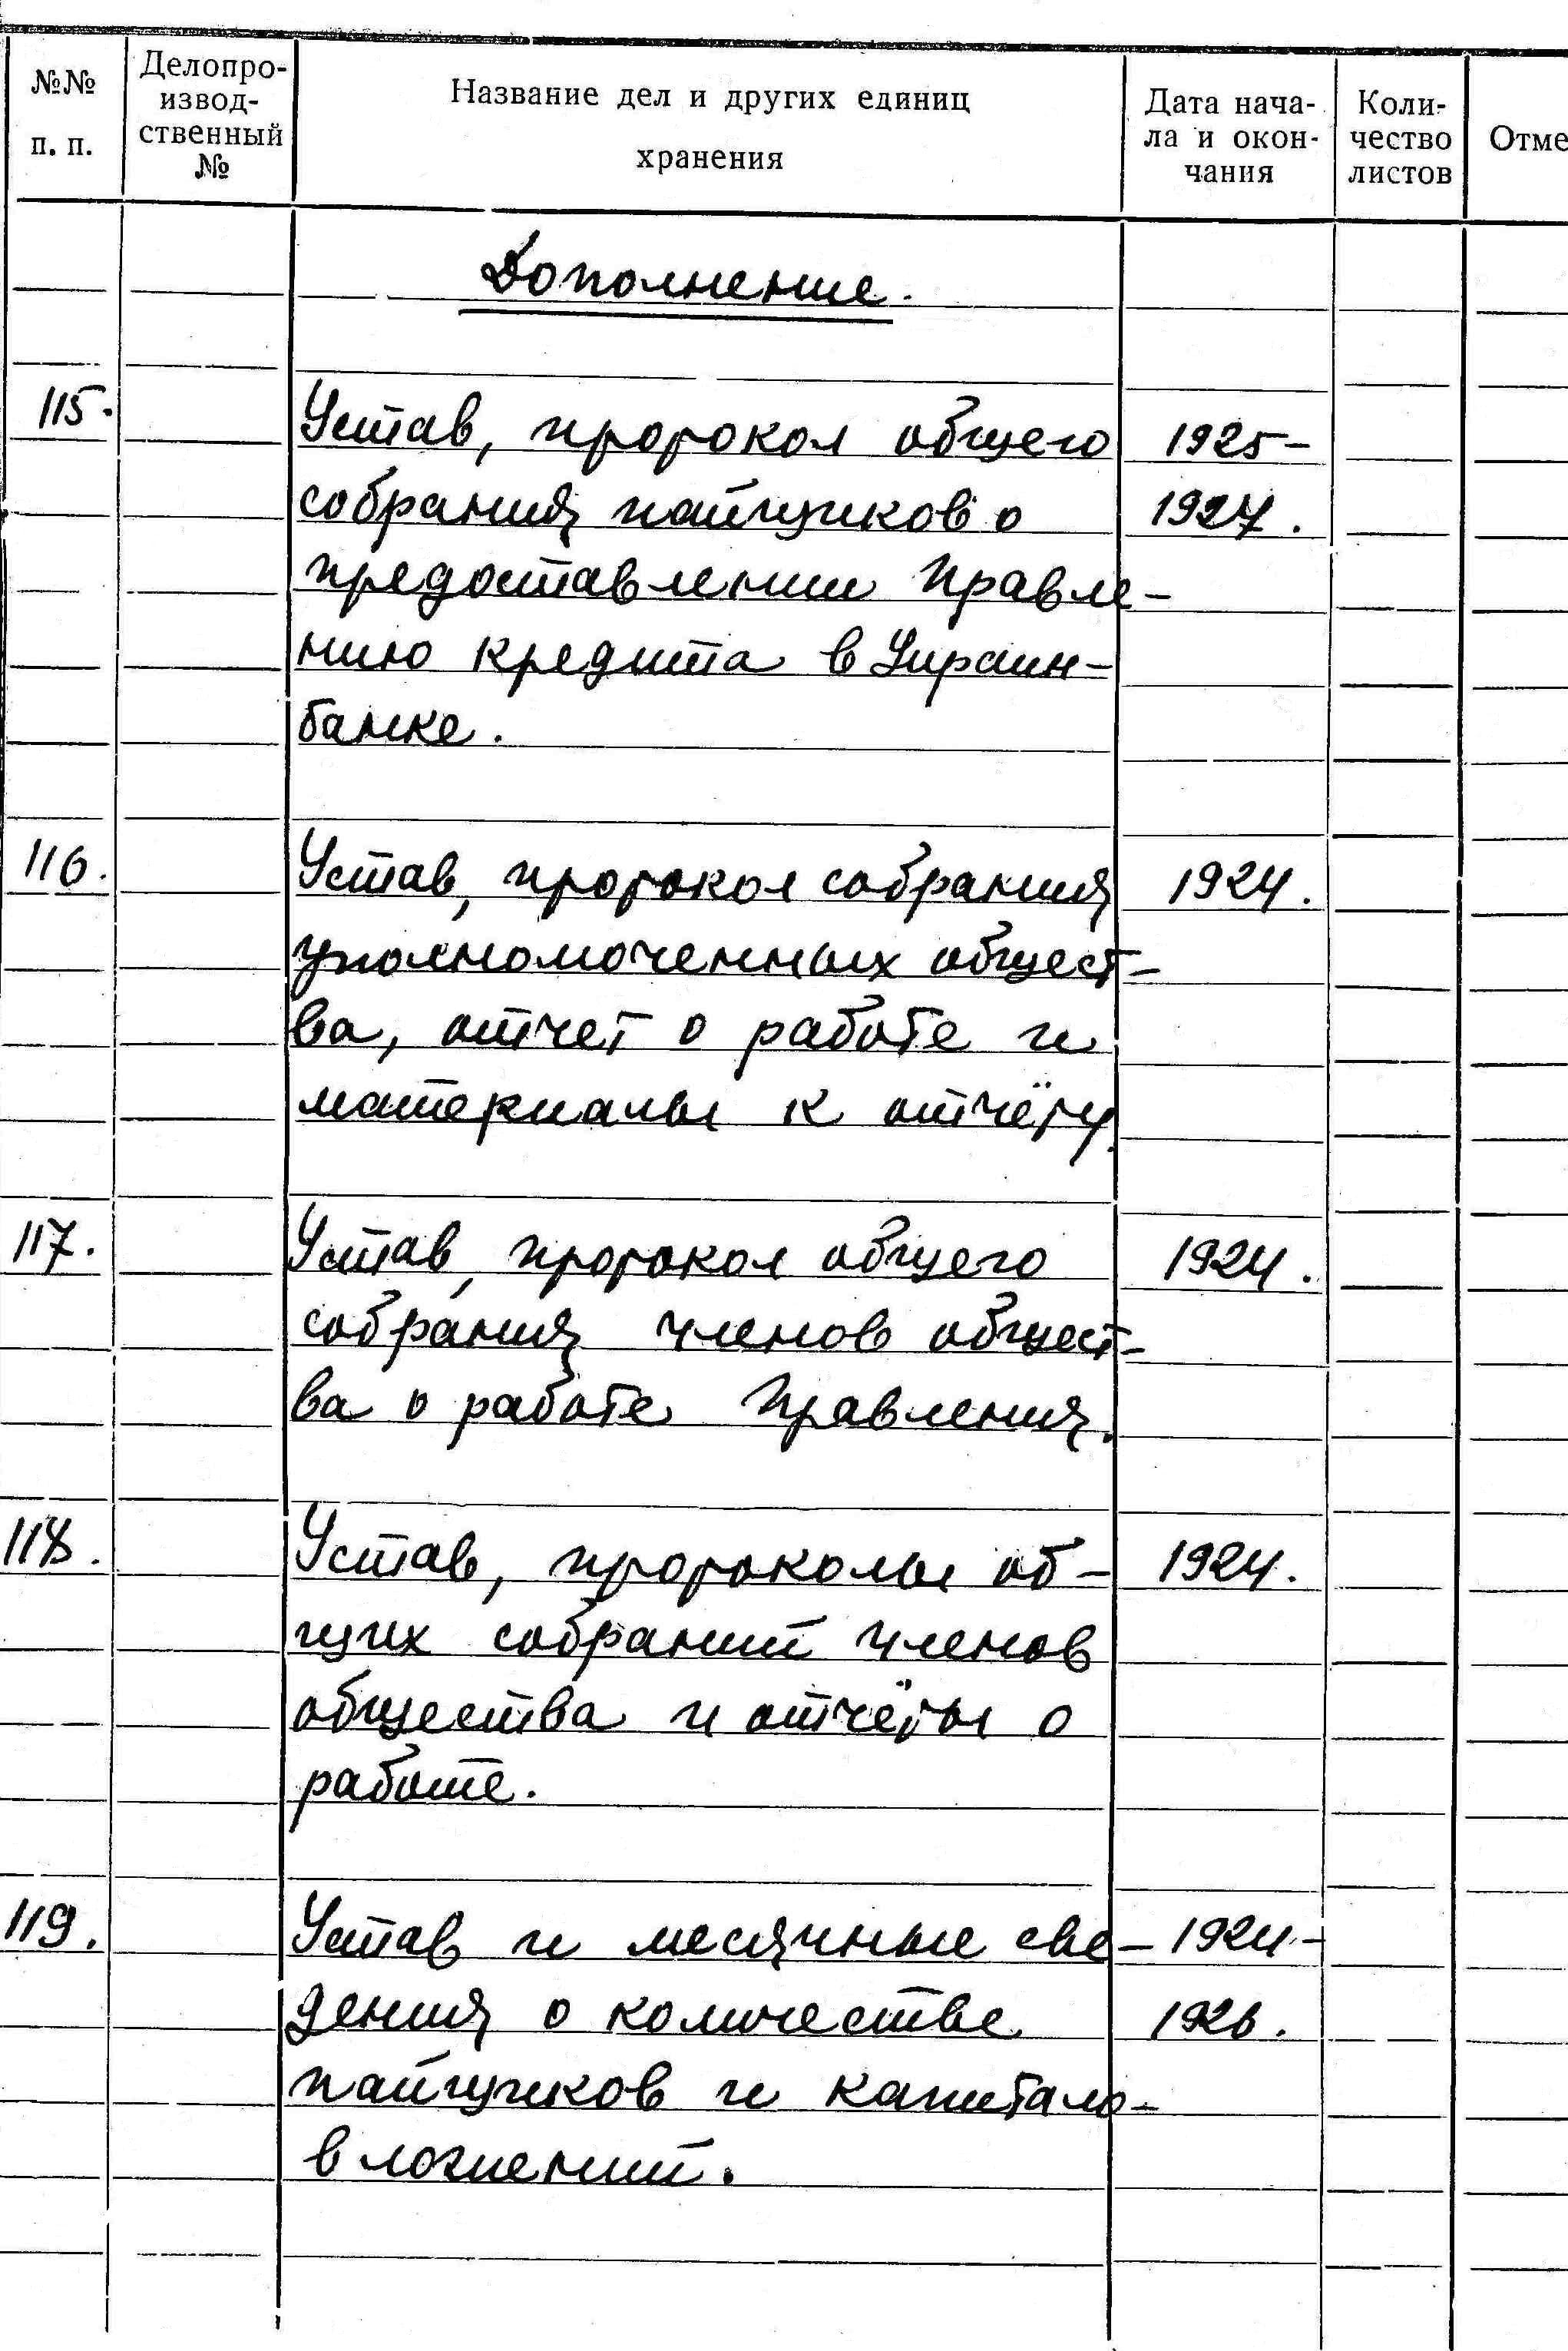 №№ п. п.
Делопро-
извод-
ственный
№
Название дел и других единиц
хранения
Дата нача-
ла и окон-
чания
Коли-
чество
листов
Отме
Дополнение.
115. Устав, протокол общего 1925-
собрания пайщиков о 1927.
предоставлении Правле-
нию кредита в Украин-
банке.
116. Устав, протокол собрания 1924.
уполномоченных общест-
ва, отчет о работе и
материалы к отчёту.
117. Устав, протокол общего 1924.
собрания членов общест-
ва о работе Правления.
118. Устав, протоколы об- 1924.
щих собраний членов
общества и отчёты о
работе.
119. Устав и месячные све- 1924-
дения о количестве 1926.
пайщиков и капитало-
вложений.